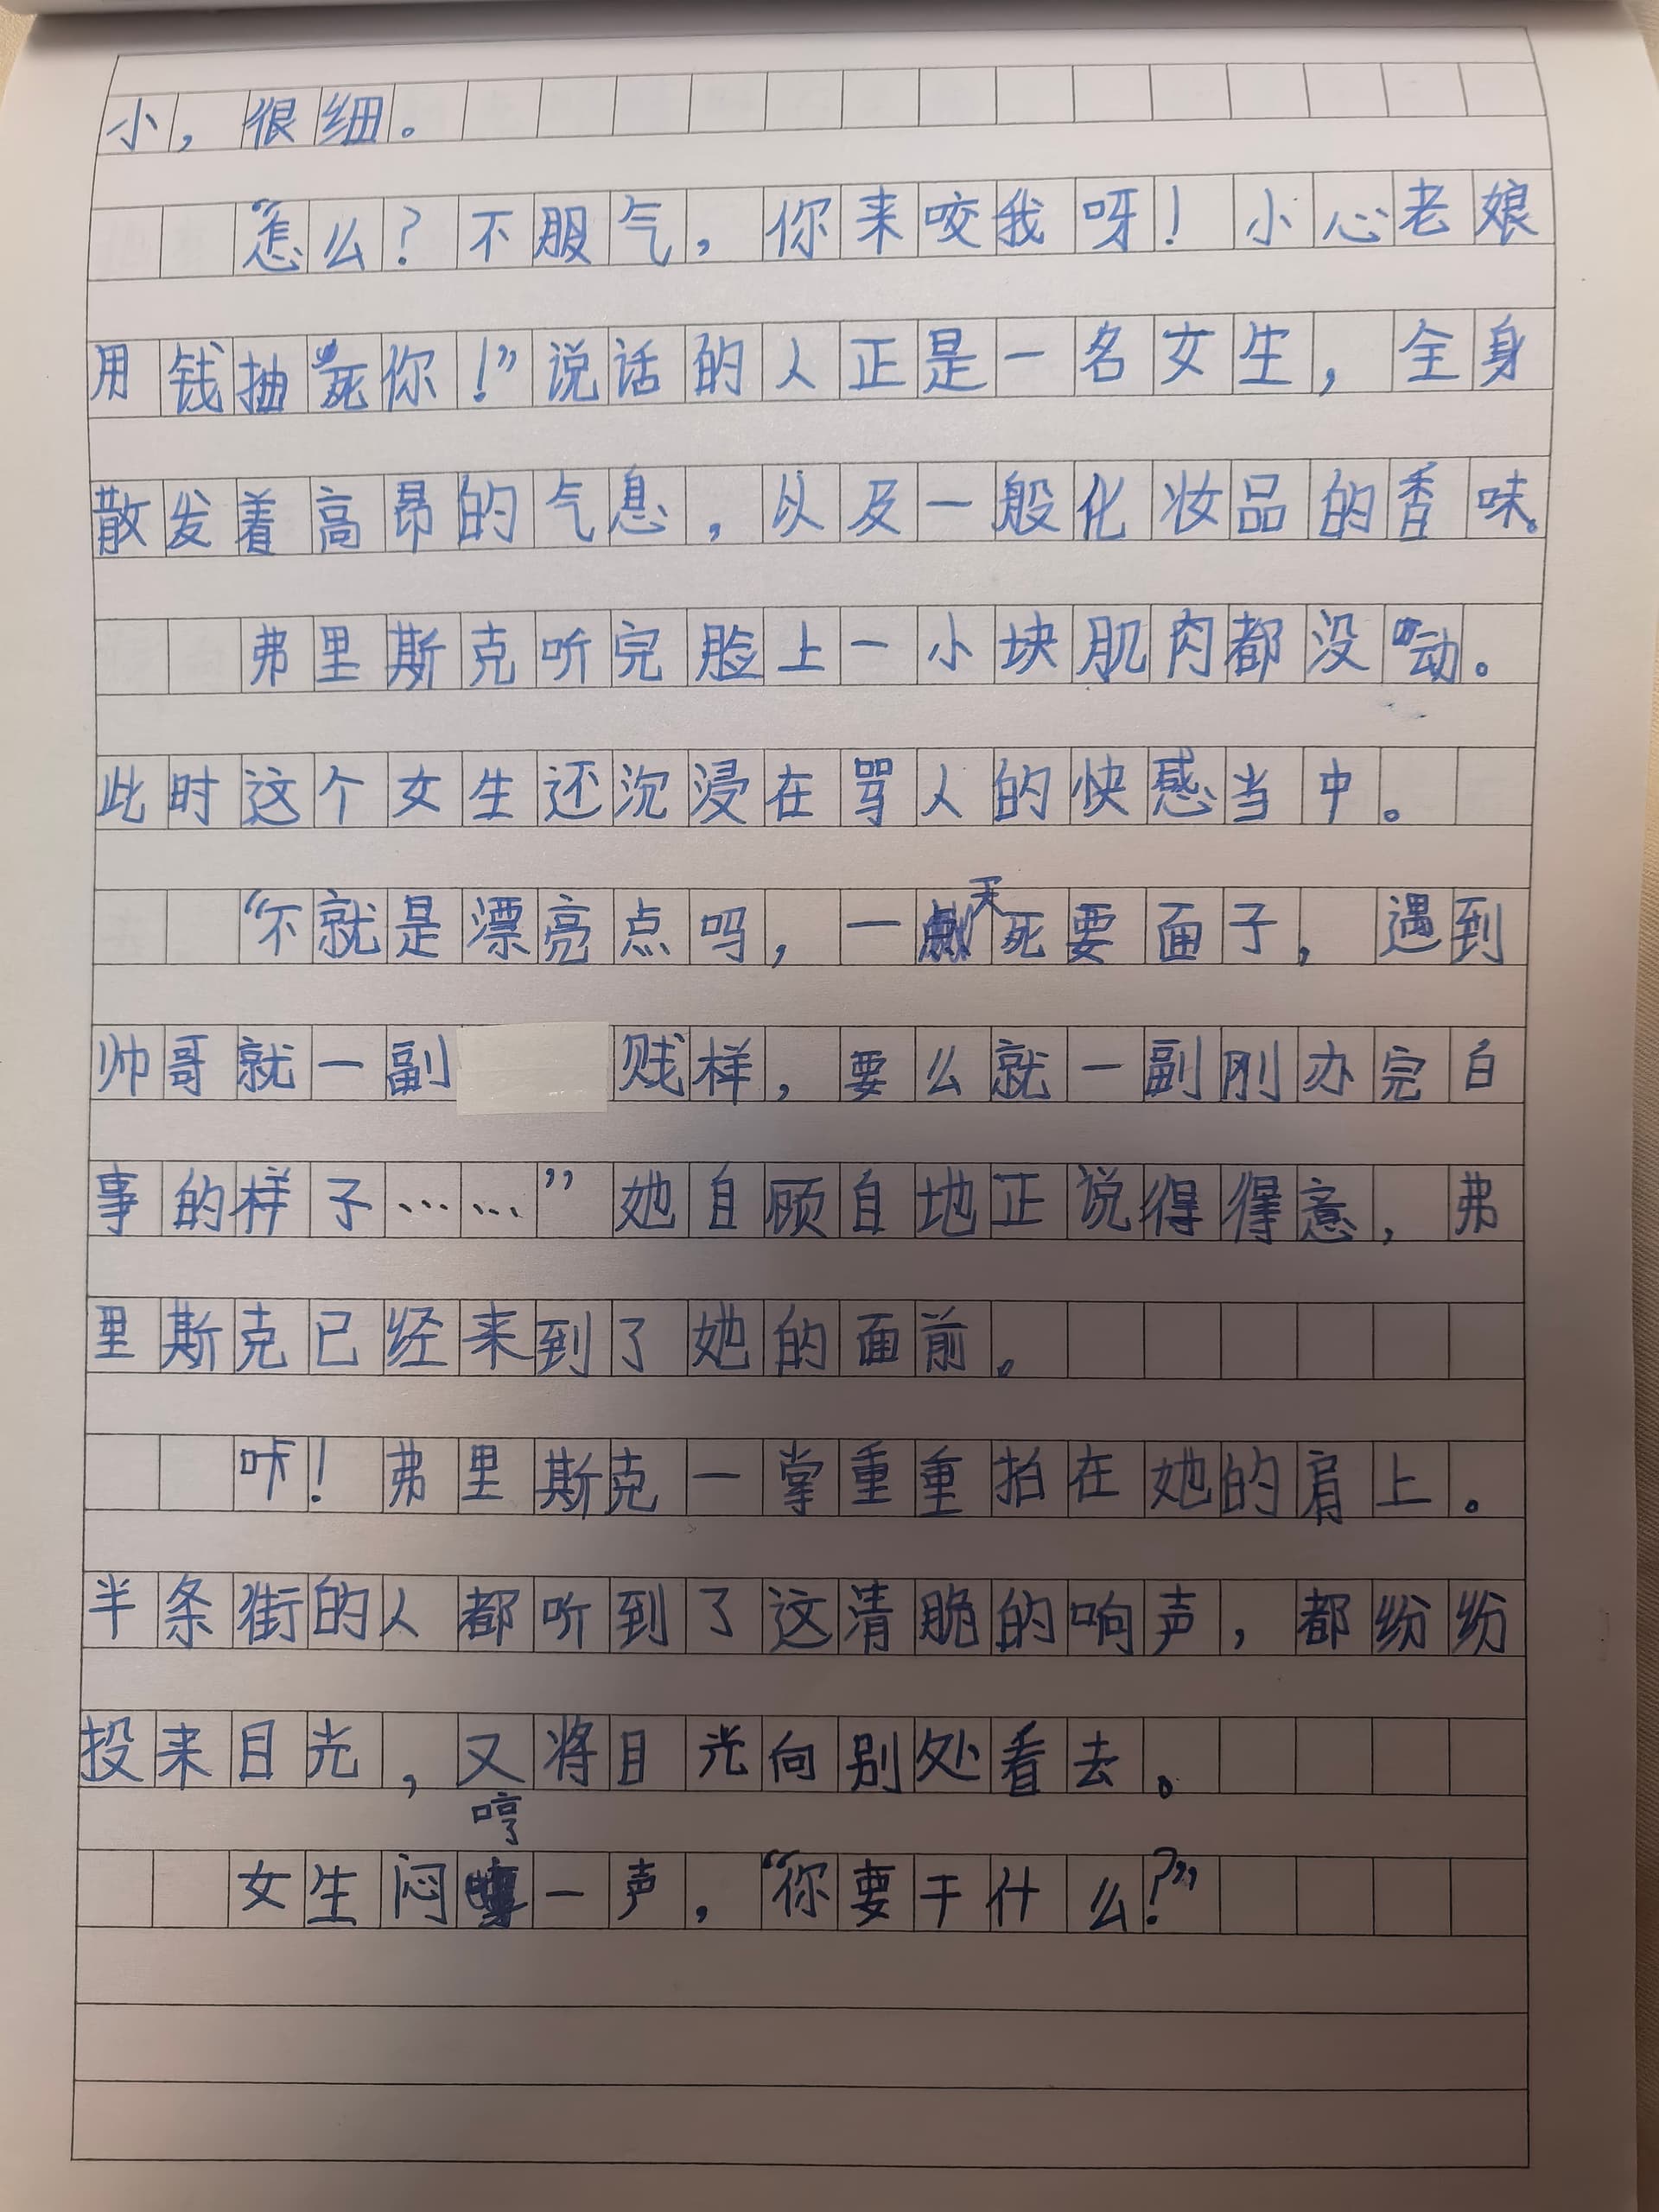 小，很细。
“怎么？不服气，你来咬我呀！小心老娘
用钱抽死你！”说话的人正是一名女生，全身
散发着高昂的气息，以及一般化妆品的香味。
弗里斯克听完脸上一小块肌肉都没动。
此时这个女生还沉浸在骂人的快感当中。
“不就是漂亮点吗，一天死要面子，遇到
帅哥就一副贱样，要么就一副刚办完白
事的样子……”她自顾自地正说得得意，弗
里斯克已经来到了她的面前。
咔！弗里斯克一掌重重拍在她的肩上。
半条街的人都听到了这清脆的响声，都纷纷
投来目光，又将目光向别处看去。
女生闷哼一声，“你要干什么？”